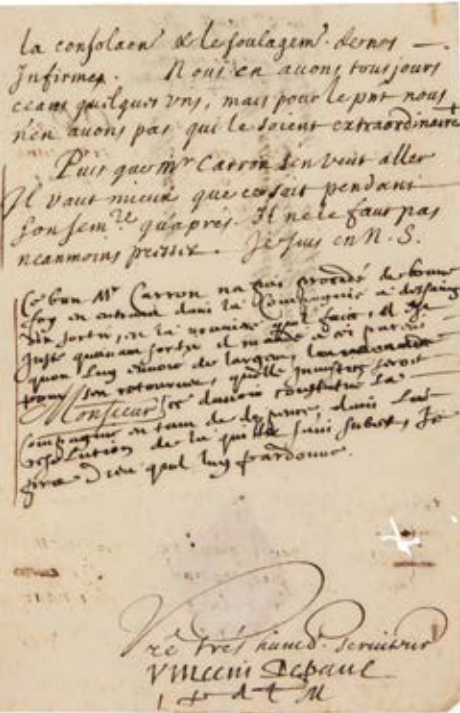 la consolaon & le soulagem.t de nos
Infirmes. Nous en auons tousjours
ceans quelques vns, mais pour le pnt nous
n'en auons pas qui le soient extraordinairem.t
Puis que Mr Carron s'en veut aller
Il vaut mieux que ce soit pendant
son sem.re qu'apres. Il ne le faut pas
neanmoins presser. Je suis en N. S.
Ce bon Mr Carron na pas procedé de bonne
foy en entrant dans la Compagnie a dessaing
den sortir, en la maniere quil faict, Il
Juste quauant sortir il mande a ses parens
quon luy enuoie de largent
pour sen retourner, quelle injustice
Monsieur
Compagnie en tant de dans la
resolution de la quitter sans subiet, Je
prie Dieu quil luy pardonne.
Vre tres humb. seruiteur
Vincent Depaul